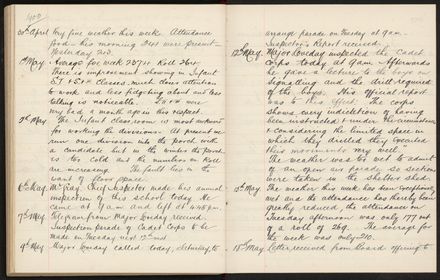 400
30th April Very fine weather this week. Attendance
good - this morning 240 were present -
Yesterday 242.
1st May Average for week 207.
There is improvement showing in Infant
S1 + S2 Classes, much closer attention
to work and less fidgetting about and less
talking is noticeable.
very bad a month ago in this respect.
3rd May The Infant Classroom is most awkward
for working the divisions. At present we
run one division into the porch with
a candidate but in the winter the porch
is too cold and the numbers on Roll
are increasing. The fault lies in the
want of floor space.
6th May Mr Gray Chief Inspector made his annual
inspection of this school today. He
came at 9 am and left at 4.45 pm.
7th May Telegram from Major Loveday received.
Inspection parade of Cadet Corps to be
made on Tuesday next 12th inst
9th May Major Loveday called today, Saturday, to
arrange parade on Tuesday at 9 am.
Inspector's Report received.
12th May. Major Loveday inspected the Cadet
Corps today at 9 am. Afterwards
he gave a lecture to the boys on
signalling and the drill required
of the boys. His official report
was to this effect. The corps
shows every indication of having
been instructed + under the circumstances
+ considering the limited space in
which they drilled they executed
this movements very well"
The weather was too wet to admit
of an open air parade so sections
were taken in the shelter shed.
15th May The weather this week has been exceptionally
wet and the attendance has thereby been
greatly reduced, the attendance on
Tuesday afternoon was only 177 out
of a roll of 269. The average for
the week was only 210.
18th May Letter received from Board offering to